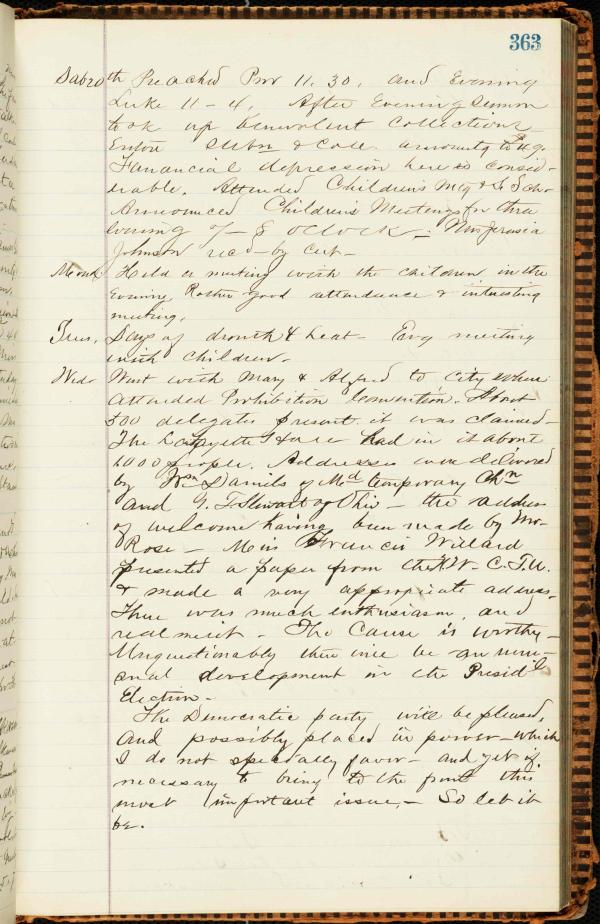 363
Sab 20th Preached Prov 11. 30, and Evening
Luke 11-4. After Evening Sermon
took up benevolent Collections
Entire & Coll. amounts to
Financial depression here is consid-
erable. Attended Children's Mtg & S. Sch.
Announced Children's Meetings for three
Evening of - 8 O'Clock - Miss
Johnson recd - by Cert -
Mond. Held a meeting with the children in the
Evening Rather good attendance & interesting
meeting.
Tues. Days of drouth & heat - Evg meeting
with children.
Wed. Went with Mary & Alfred to City where
attended Prohibition Convention. About
500 delegates present it was claimed -
The Lafayette had in it about
people. Addresses were delivered
by Wm Daniels of Md temporary Chn
and G. T. Stewart of Ohio - the address
of welcome having been made by Mr
Rose - Miss Francis Willard
presented a paper from the W. C. T. U.
& made a very appropriate address.
There was much enthusiasm, and
real merit. The Cause is worthy -
Unquestionably there will be an unu-
sual development in the Presidtl
Election -
The Democratic party will be pleased,
and possibly placed in power - which
I do not specially favor - and yet if
necessary to bring to the front this
most important issue, - So let it
be.